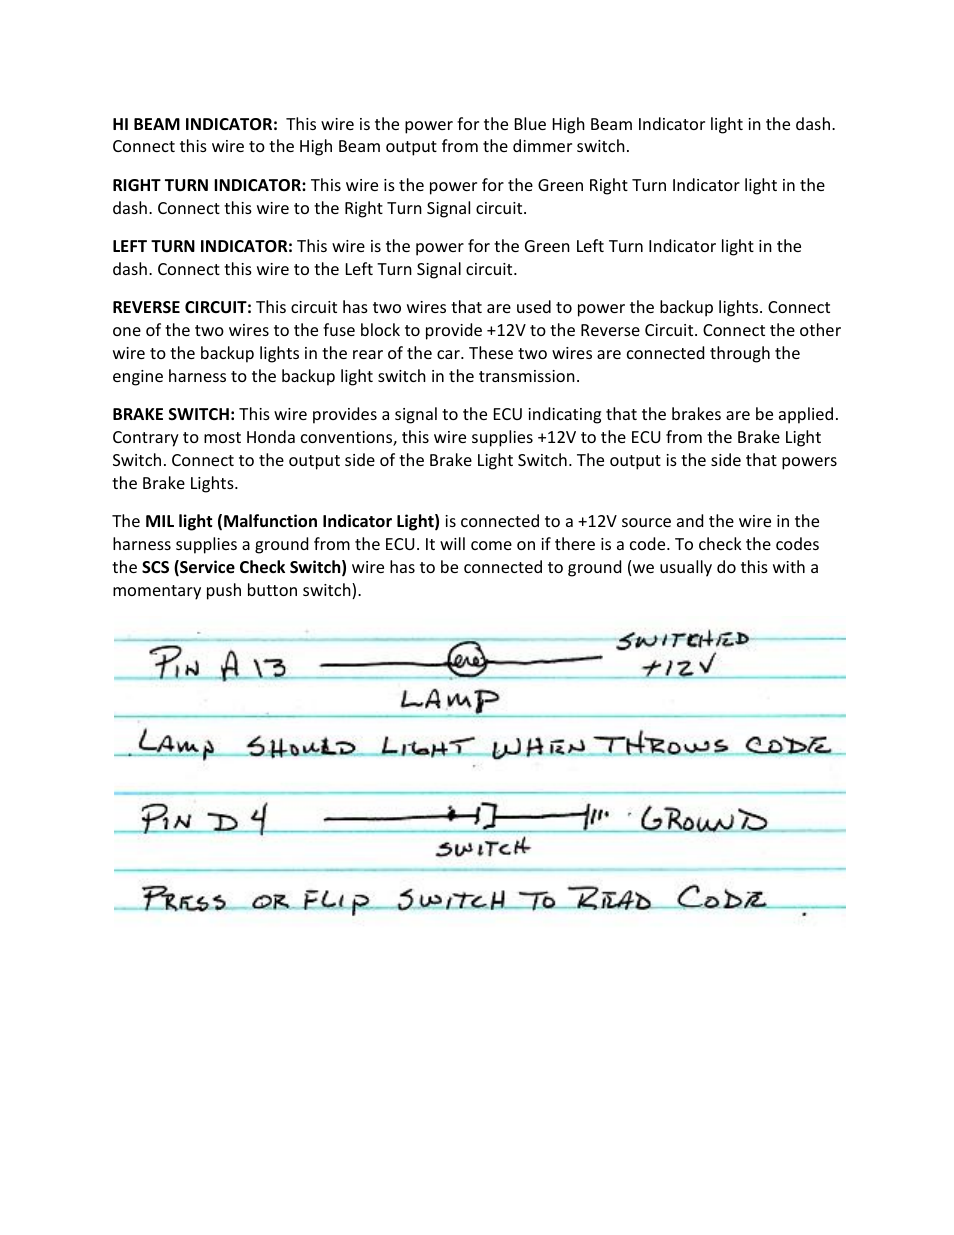 HI BEAM INDICATOR:  This wire is the power for the Blue High Beam Indicator light in the dash.
Connect this wire to the High Beam output from the dimmer switch.
RIGHT TURN INDICATOR: This wire is the power for the Green Right Turn Indicator light in the
dash. Connect this wire to the Right Turn Signal circuit.
LEFT TURN INDICATOR: This wire is the power for the Green Left Turn Indicator light in the
dash. Connect this wire to the Left Turn Signal circuit.
REVERSE CIRCUIT: This circuit has two wires that are used to power the backup lights. Connect
one of the two wires to the fuse block to provide +12V to the Reverse Circuit. Connect the other
wire to the backup lights in the rear of the car. These two wires are connected through the
engine harness to the backup light switch in the transmission.
BRAKE SWITCH: This wire provides a signal to the ECU indicating that the brakes are be applied.
Contrary to most Honda conventions, this wire supplies +12V to the ECU from the Brake Light
Switch. Connect to the output side of the Brake Light Switch. The output is the side that powers
the Brake Lights.
The MIL light (Malfunction Indicator Light) is connected to a +12V source and the wire in the
harness supplies a ground from the ECU. It will come on if there is a code. To check the codes
the SCS (Service Check Switch) wire has to be connected to ground (we usually do this with a
momentary push button switch).
PIN A 13
SWITCHED
+12V
LAMP
LAMP SHOULD LIGHT WHEN THROWS CODE
PIN D 4
GROUND
SWITCH
PRESS OR FLIP SWITCH TO READ CODE